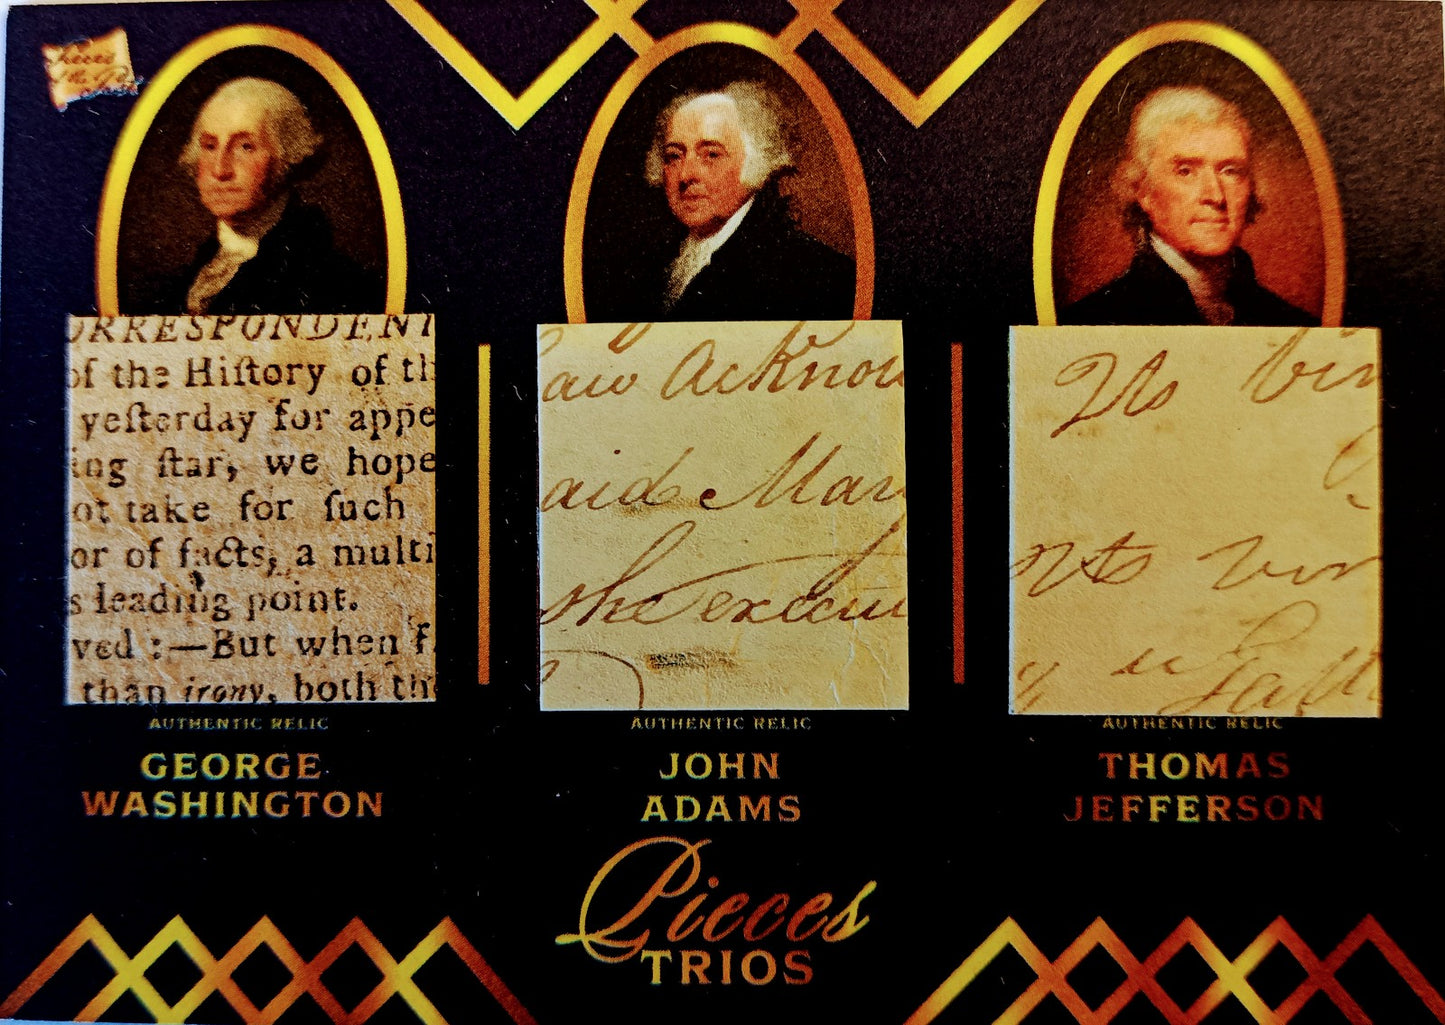 Pieces
of the Past
ORRESPONDENT
of the Hiſtory of th
yeſterday for appe
ing ſtar, we hope
ot take for ſuch
or of facts, a multi
s leading point.
ved :—But when f
than irony, both the
aw Acknow
aid Mary
she execu
Its vir
nts vir
AUTHENTIC RELIC
AUTHENTIC RELIC
AUTHENTIC RELIC
GEORGE
WASHINGTON
JOHN
ADAMS
THOMAS
JEFFERSON
Pieces
TRIOS